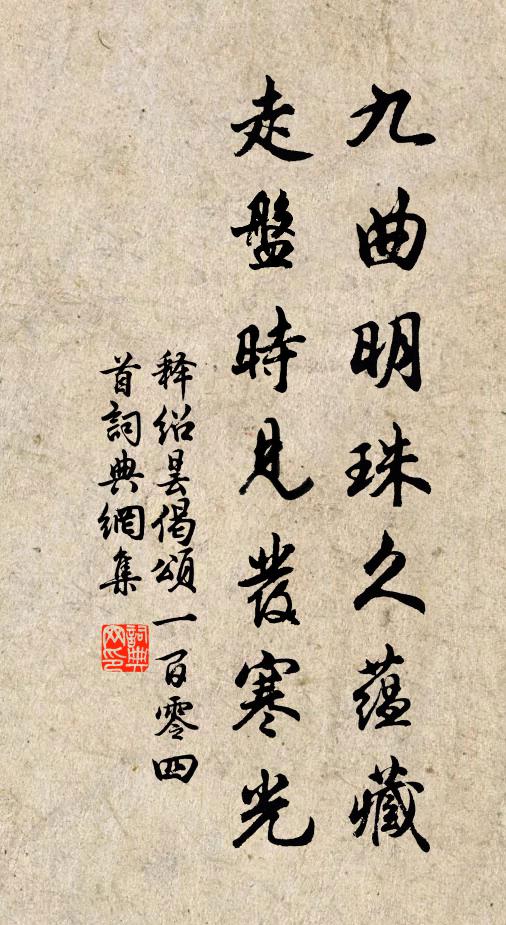 九曲明珠久蘊藏
走盤時見發寒光
释紹昙偈頌一百零四
首詞典網集
詞典
网印